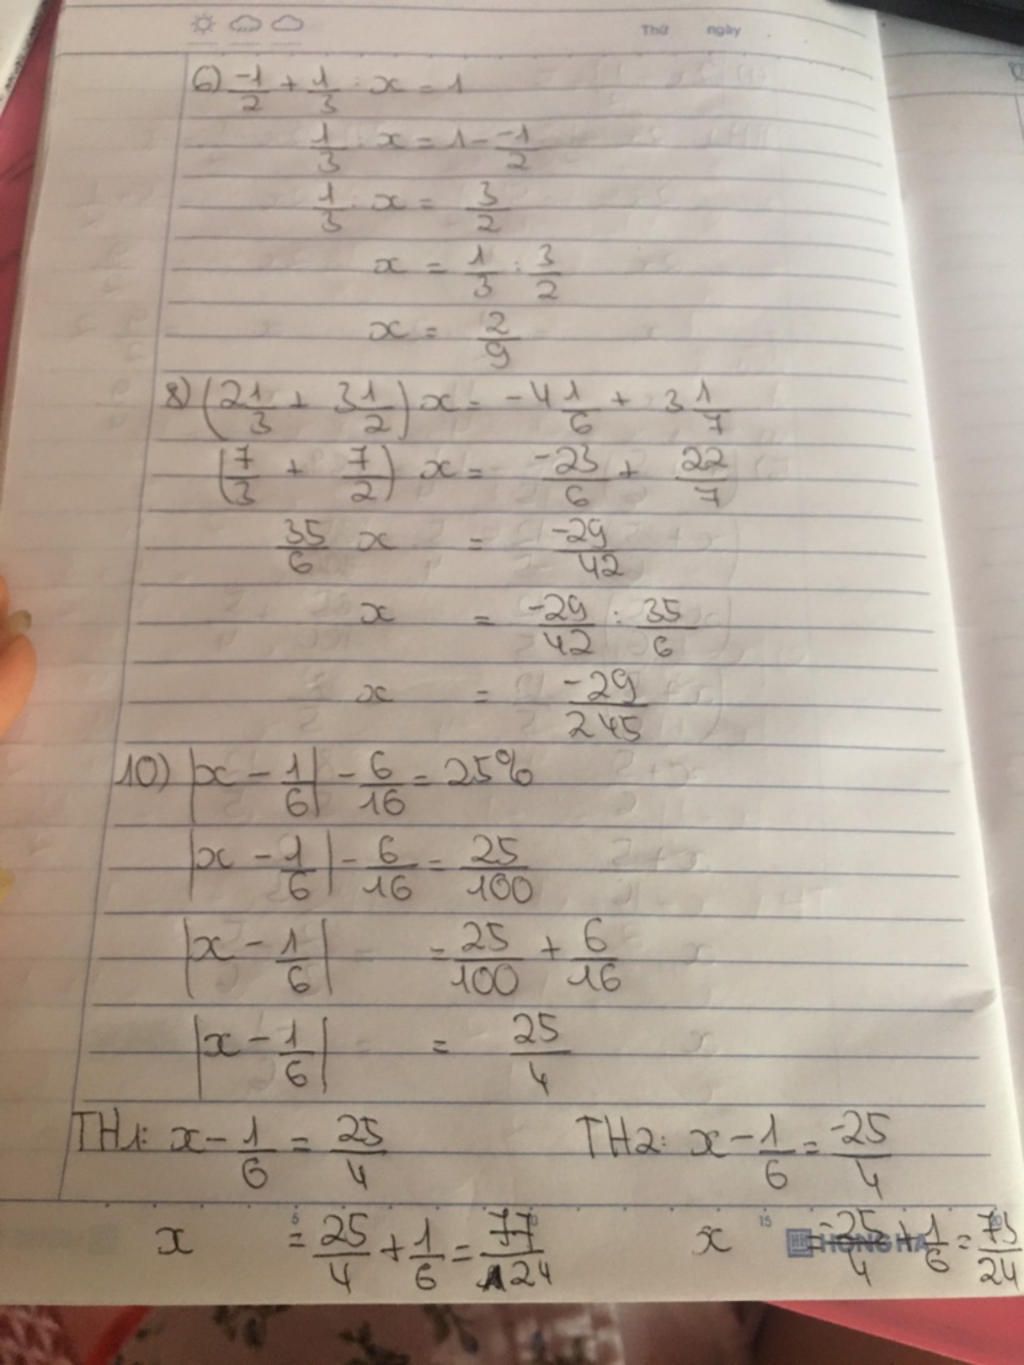 Thứ ngày
6) -1/2 + 1/3 : x = 1
1/3 : x = 1 - -1/2
1/3 : x = 3/2
x = 1/3 : 3/2
x = 2/9
8) (2 1/3 + 3 1/2) x = -4 1/6 + 3 1/7
(7/3 + 7/2) x = -23/6 + 22/7
35/6 x = -29/42
x = -29/42 : 35/6
x = -29/245
10) |x - 1/6| - 6/16 = 25%
|x - 1/6| - 6/16 = 25/100
|x - 1/6| = 25/100 + 6/16
|x - 1/6| = 25/4
TH1: x - 1/6 = 25/4 TH2: x - 1/6 = -25/4
x = 25/4 + 1/6 = 77/24 x = -25/4 + 1/6 = 73/24
5 15
HONG HA